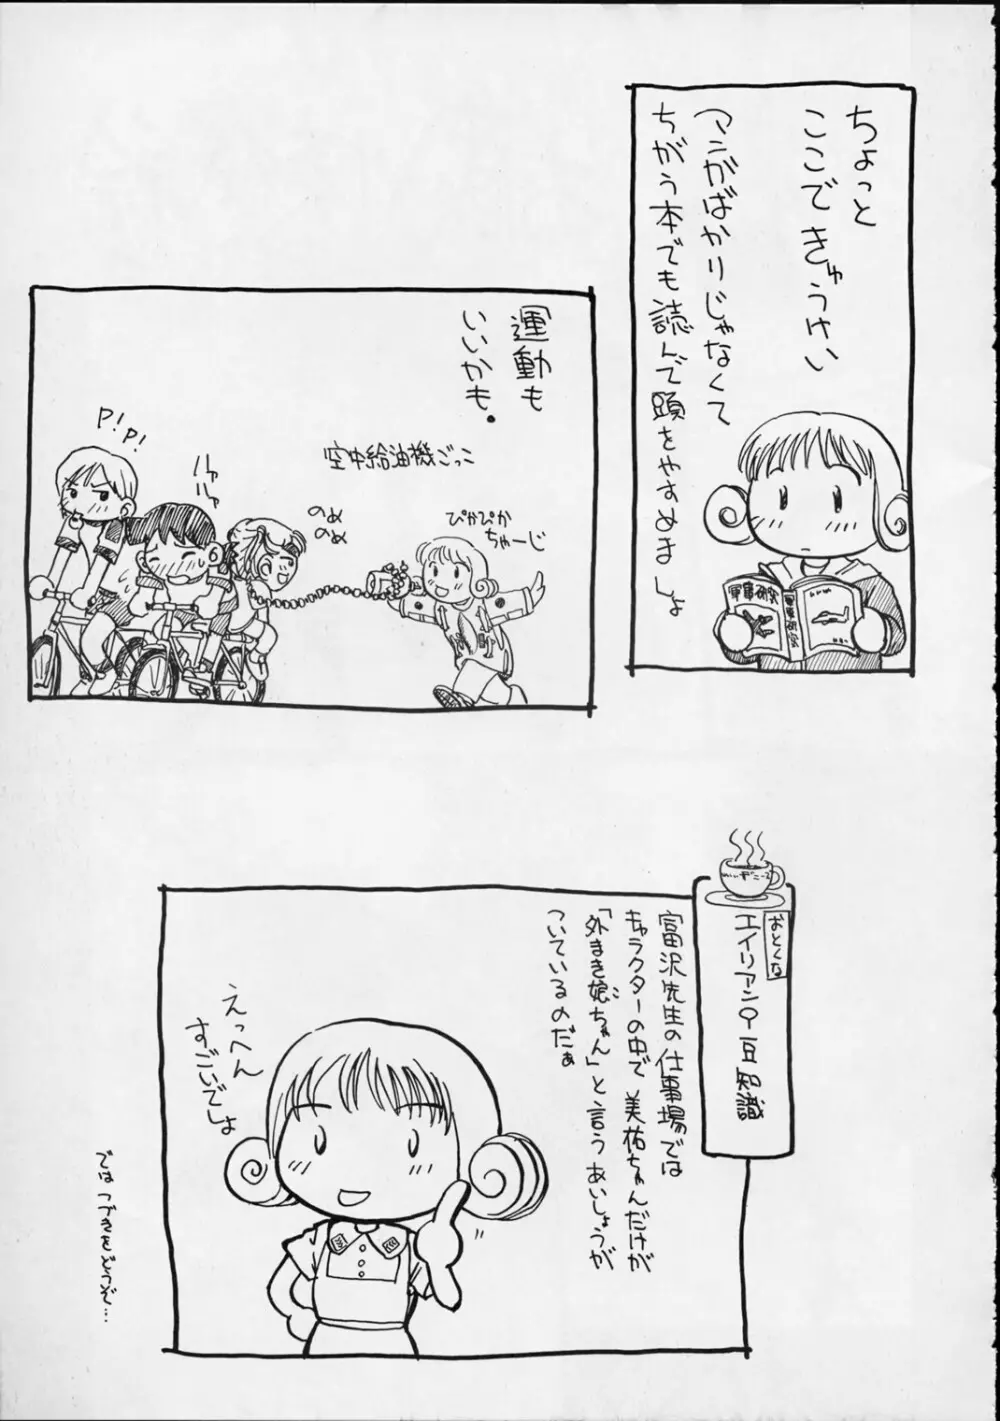 ちょっと
ここできゅうけい
マンガばかりじゃなくて
ちがう本でも読んで頭をやすめましょ
軍事研究
軍事研究
運動も
いいかも。
P!P!
ハァ
ハァ
空中給油機ごっこ
のめ
のめ
ぴかぴか
ちゃーじ
おとくな
エイリアン9豆知識
富沢先生の仕事場では
キャラクターの中で美祐ちゃんだけが
「外まき娘ちゃん」と言うあいしょうが
ついているのだぁ
えっへん
すごいでしょ
では つづきをどうぞ…